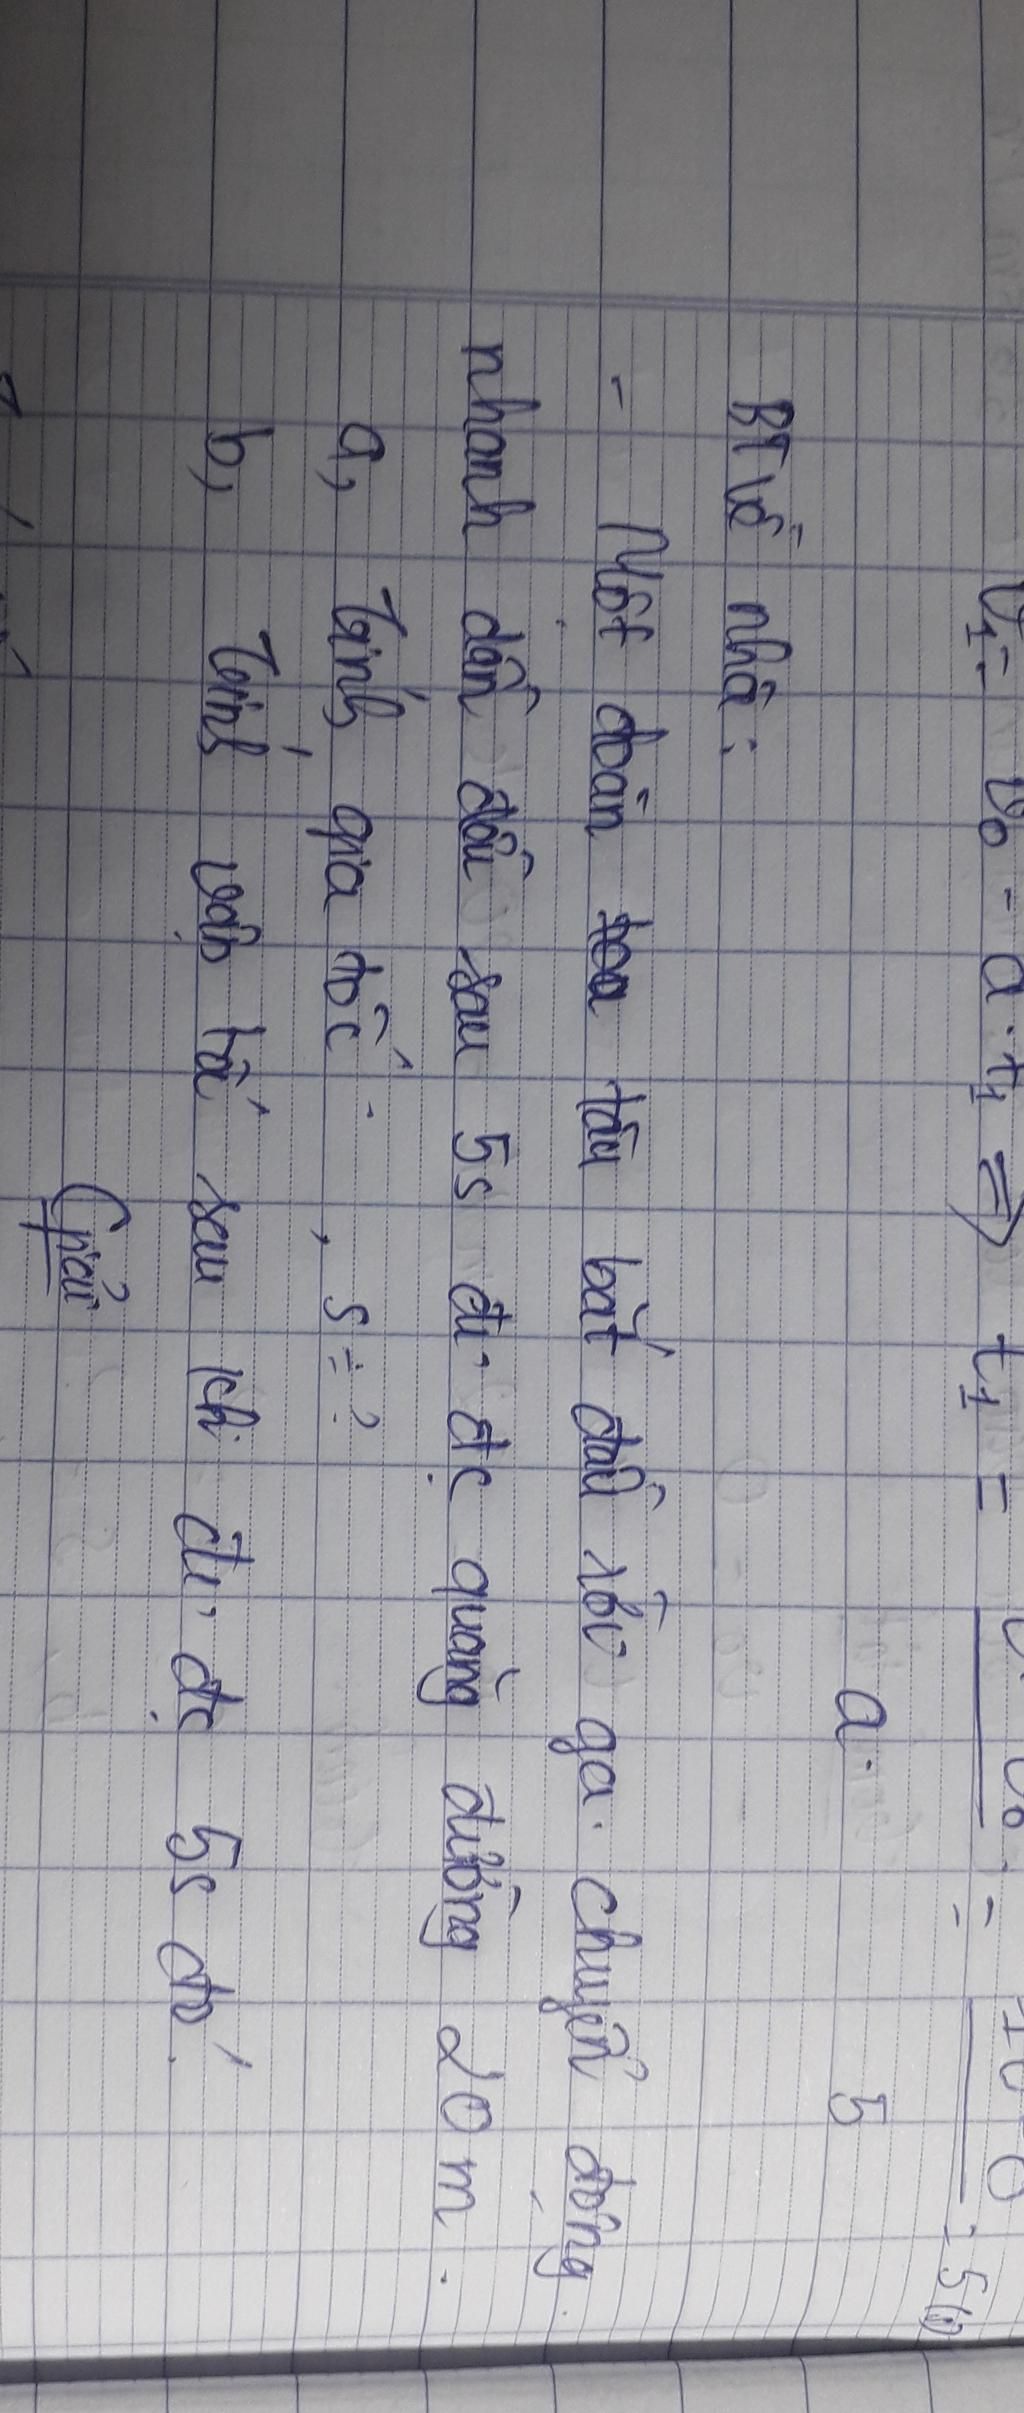 v₁ = v₀ - a.t₁ ⇒ t₁ = =
a. 5
BT về nhà:
- Một đoàn tàu bắt đầu rời ga. chuyển động
nhanh dần đều sau 5s đi đc quãng đường 20 m.
a, Tính gia tốc. , s = ?
b, Tính vận tố sau khi đi đc 5s đó.
Giải